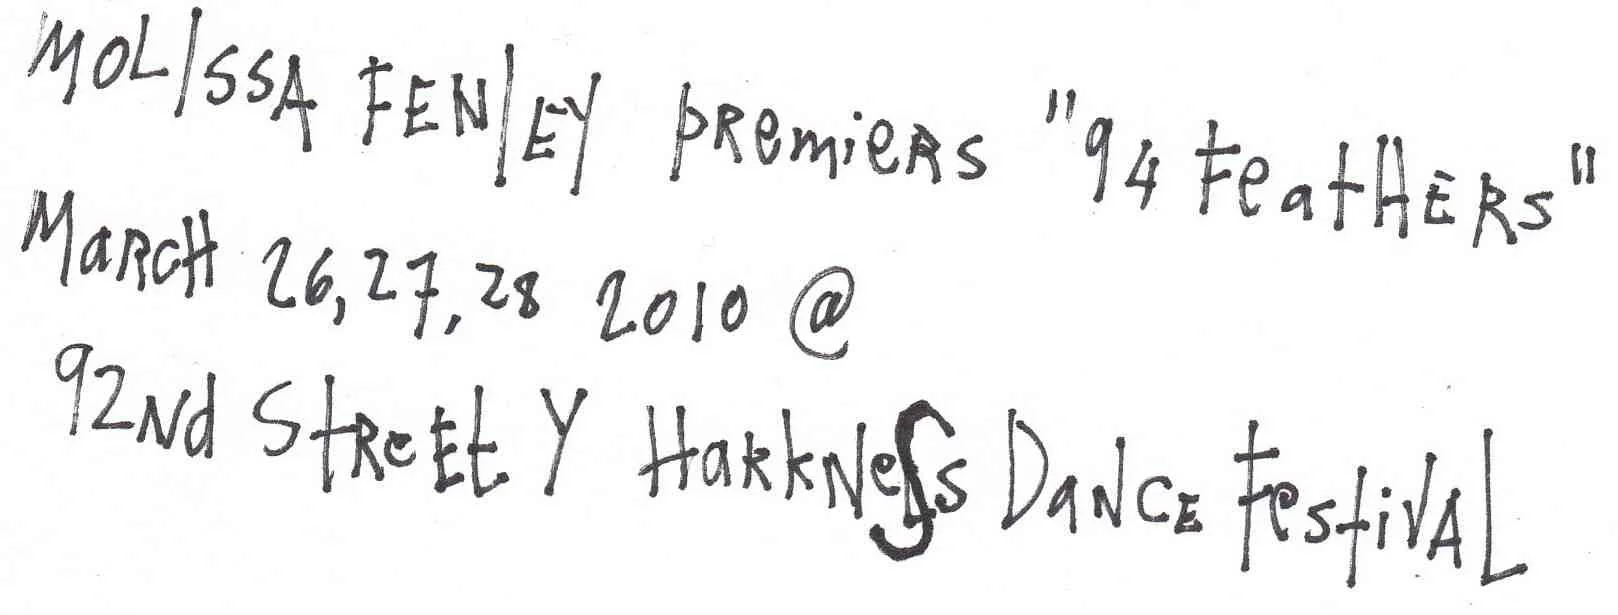 MOLISSA FENLEY PREMIERS "94 FeatHERS"
MARCH 26,27,28 2010 @
92Nd StReEt Y HaRkNeSs DaNCE FestiVAL